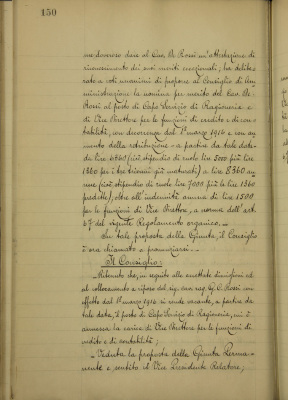 150
me doveroso dare al Cav. De Rossi un'attestazione di
riconoscimento dei suoi meriti eccezionali, ha delibe-
rato a voti unanimi di proporre al Consiglio di Am-
ministrazione la nomina per merito del Cav. De
Rossi al posto di Capo Servizio di Ragioneria e
di Vice Direttore per le funzioni di credito e di con-
tabilità, con decorrenza dal 1° marzo 1914 e con au-
mento della retribuzione - a partire da tale data-
da lire 6360 (cioè stipendio di ruolo lire 5000 più lire
1360 per i tre trienni già maturati) a lire 8360 an-
nue (cioè stipendio di ruolo lire 7000 più le lire 1360
predette), oltre all'indennità annua di lire 1500
per le funzioni di Vice Direttore, a norma dell'art.
37 del vigente Regolamento organico.
Su tale proposta della Giunta, il Consiglio
è ora chiamato a pronunciarsi.
Il Consiglio:
Ritenuto che, in seguito alle accettate dimissioni ed
al collocamento a riposo del sig. cav. rag. G. C. Rossi con
effetto dal 1° marzo 1914 si rende vacante, a partire da
tale data, il posto di Capo Servizio di Ragioneria, cui è
annessa la carica di Vice Direttore per le funzioni di
credito e di contabilità;
Veduta la proposta della Giunta Perma-
nente e sentito il Vice Presidente Relatore;